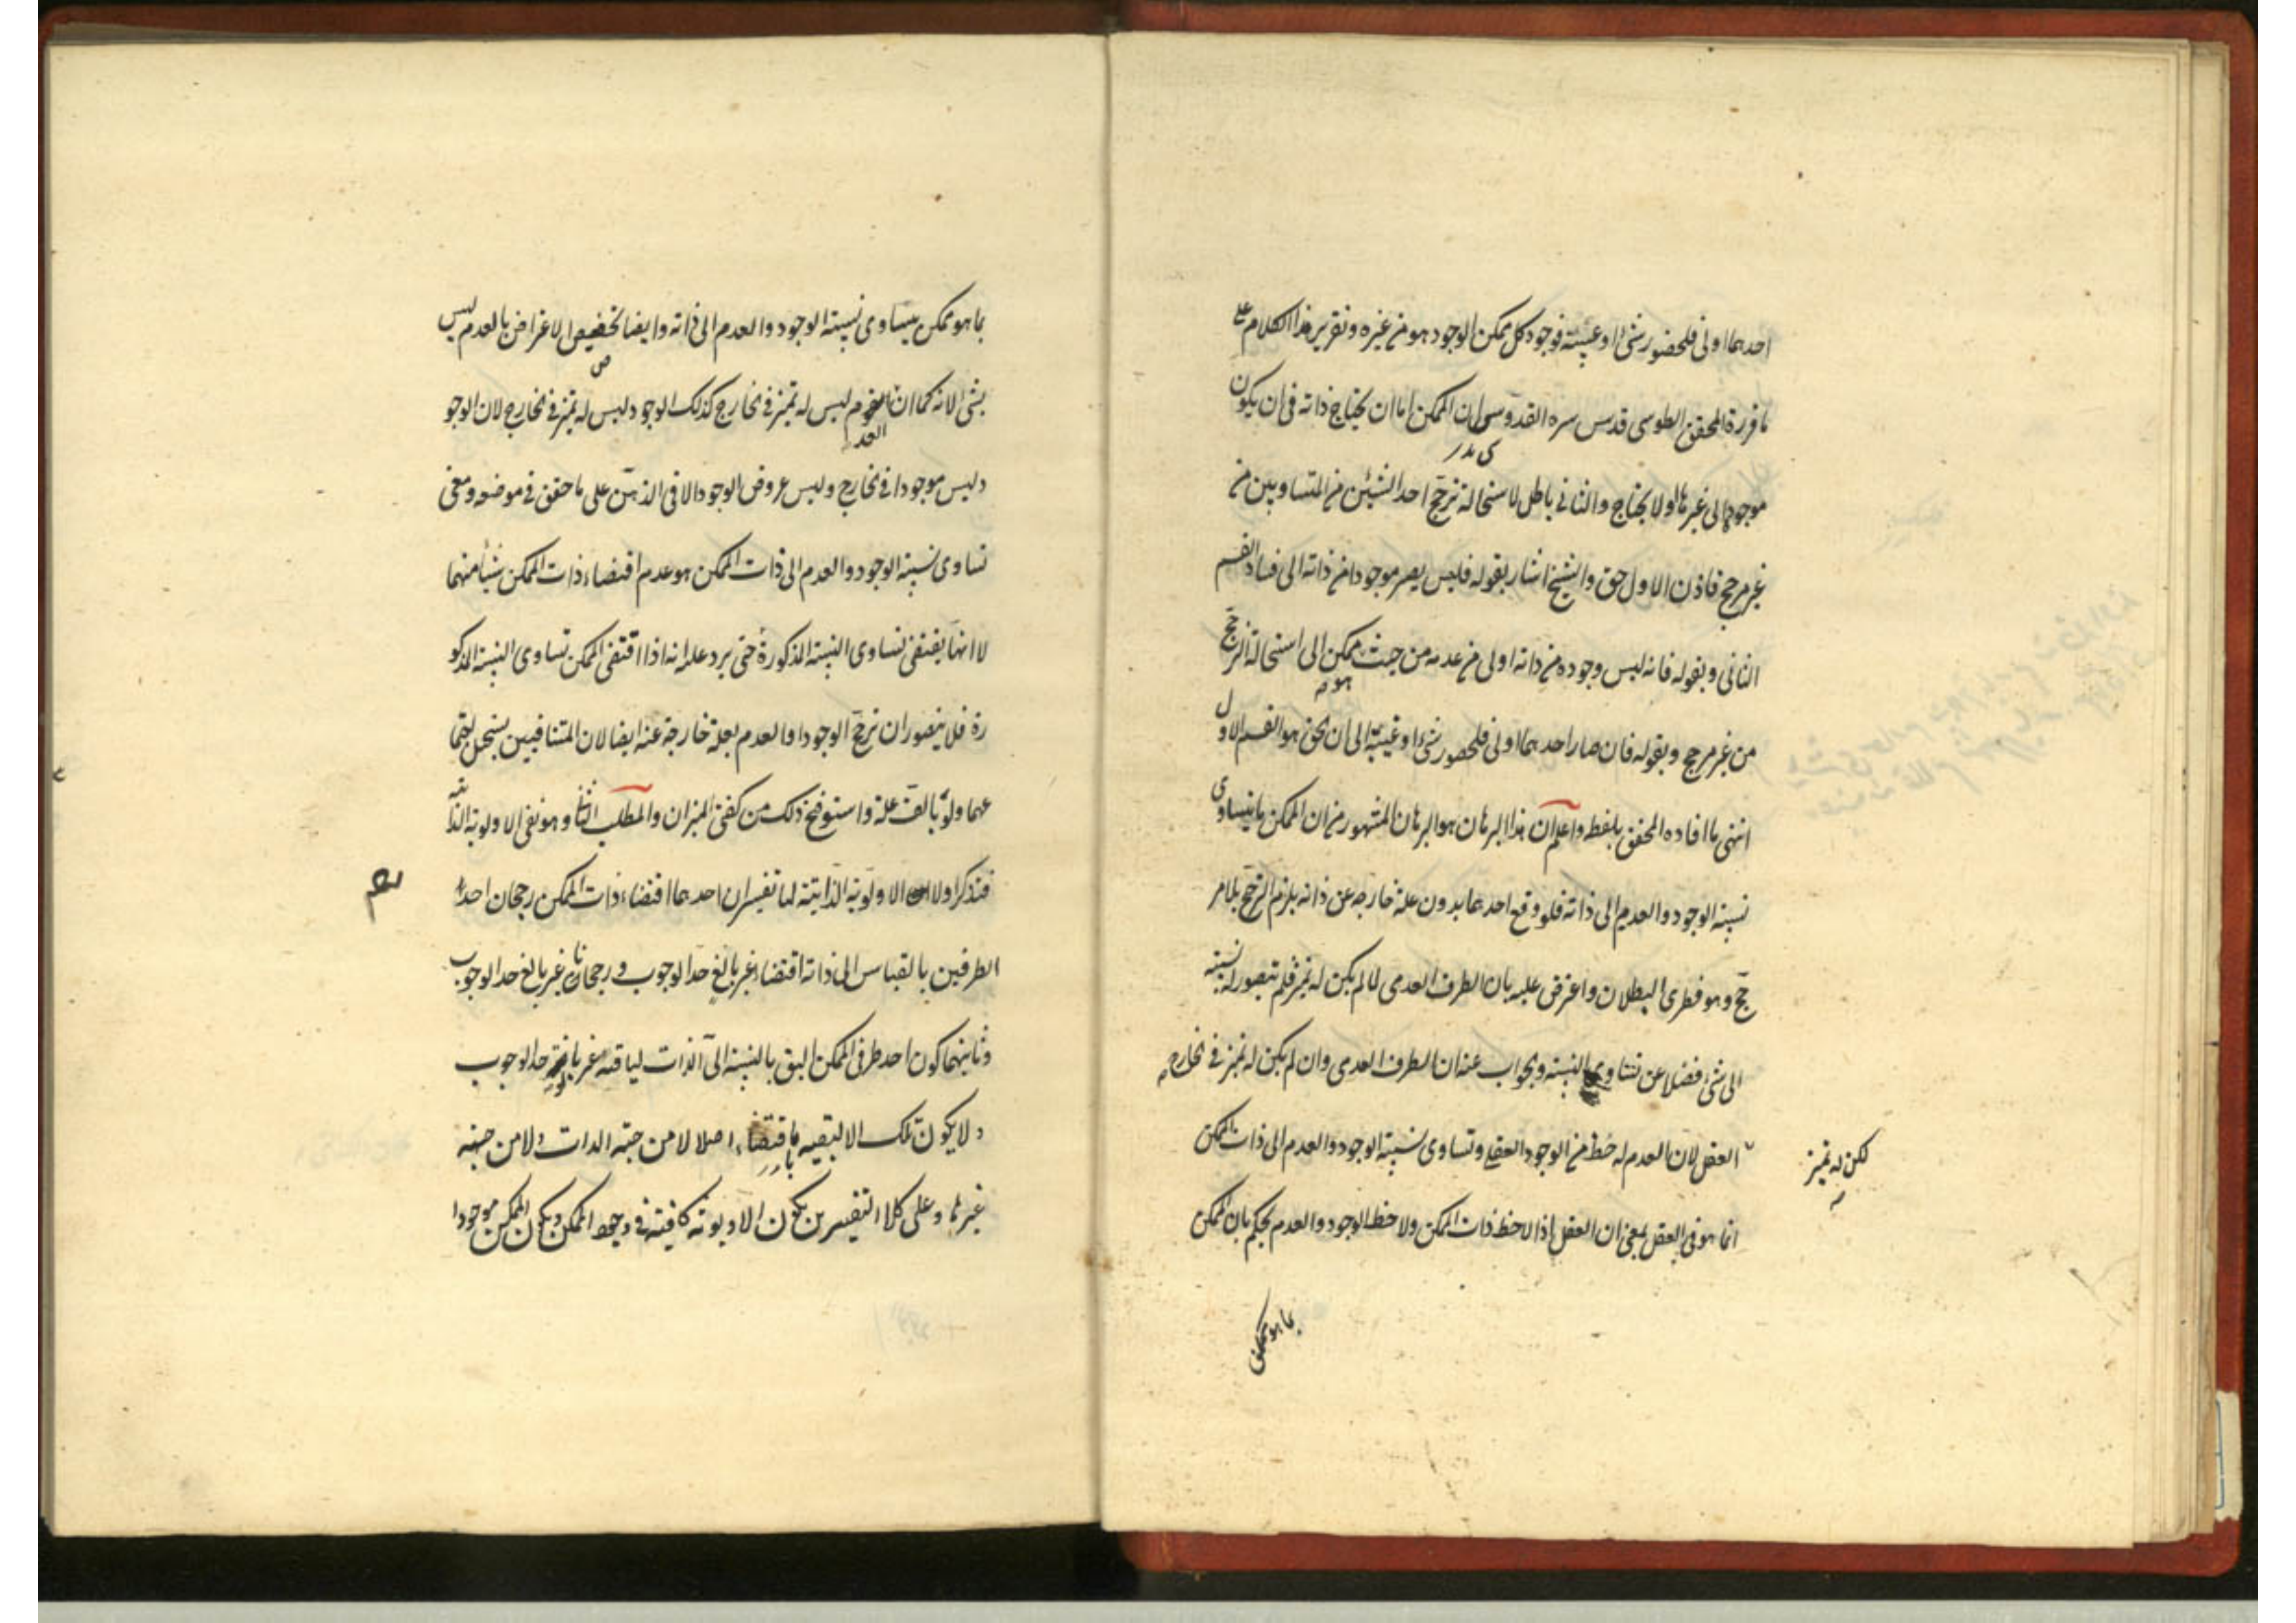 احدهما اولى فلحضور شئ او غيبته فوجود كل ممكن الوجود هو من غيره وتقرير هذا الكلام على
ما قرره المحقق الطوسى قدس سره القدوسى ان الممكن اما ان يحتاج ذاته فى ان يكون
موجودا الى غيرها او لا يحتاج والثانى باطل لاستحالة ترجح احد الشيئين من المتساويين من
غير مرجح فاذن الاول حق والشيخ اشار بقوله فليس يصير موجودا من ذاته الى فساد القسم
الثانى وبقوله فانه ليس وجوده من ذاته اولى من عدمه من حيث هو ممكن الى استحالة الترجح
من غير مرجح وبقوله فان صار احدهما اولى فلحضور شئ او غيبته الى ان الحق هو القسم الاول
انتهى ما افاده المحقق بلفظه واعلم ان هذا البرهان هو البرهان المشهور من ان الممكن ما يتساوى
نسبة الوجود والعدم الى ذاته فلو وقع احدهما بدون علة خارجه عن ذاته يلزم الترجح بلا مر
جح وهو فطرى البطلان واعترض عليه بان الطرف العدمى لما لم يكن له تميز فلم يتصور له نسبة
الى شئ فضلا عن تساوى النسبة والجواب عنه ان الطرف العدمى وان لم يكن له تميز فى الخارج
لكن له تميز
العقل لان العدم له حظ من الوجود العقلى وتساوى نسبة الوجود والعدم الى ذات الممكن
انما هو فى العقل بمعنى ان العقل اذا لاحظ ذات الممكن ولاحظ الوجود والعدم يحكم بان الممكن
بما هو ممكن
بما هو ممكن يتساوى نسبة الوجود والعدم الى ذاته وايضا تخصيص الاعتراض بالعدم ليس
بشئ لانه كما ان العدم ليس له تميز فى الخارج كذلك الوجود ليس له تميز فى الخارج لان الوجو
د ليس موجودا فى الخارج وليس عروض الوجود الا فى الذهن على ما حقق فى موضعه ومعنى
تساوى نسبة الوجود والعدم الى ذات الممكن هو عدم اقتضاء ذات الممكن شيئا منهما
لا انها يقتضى تساوى النسبة المذكورة حتى يرد عليه انه اذا اقتضى الممكن تساوى النسبة المذكو
رة فلا يتصور ان ترجح الوجود او العدم بعلة خارجة عنه ايضا لان المتنافيين يستحيل اجتما
عهما ولو بالف علة واستوضح ذلك من كفتى الميزان والمطلب الثانى وهو نفى الاولوية الذاتية
فنذكر اولا ان الاولوية الذاتية لها تفسيران احدهما اقتضاء ذات الممكن رجحان احد
الطرفين بالقياس الى ذاته اقتضاء غير بالغ حد الوجوب ورجحانا غير بالغ حد الوجوب
وثانيهما كون احد طرفى الممكن اليق بالنسبة الى الذات لياقة غير بالغة حد الوجوب
ولا يكون تلك الاليقيه باقتضاء اصلا لا من جهة الذات ولا من جهة
غيرها وعلى كلا التفسيرين يكون الاولوية كافية فى وجود الممكن ويكون الممكن موجودا